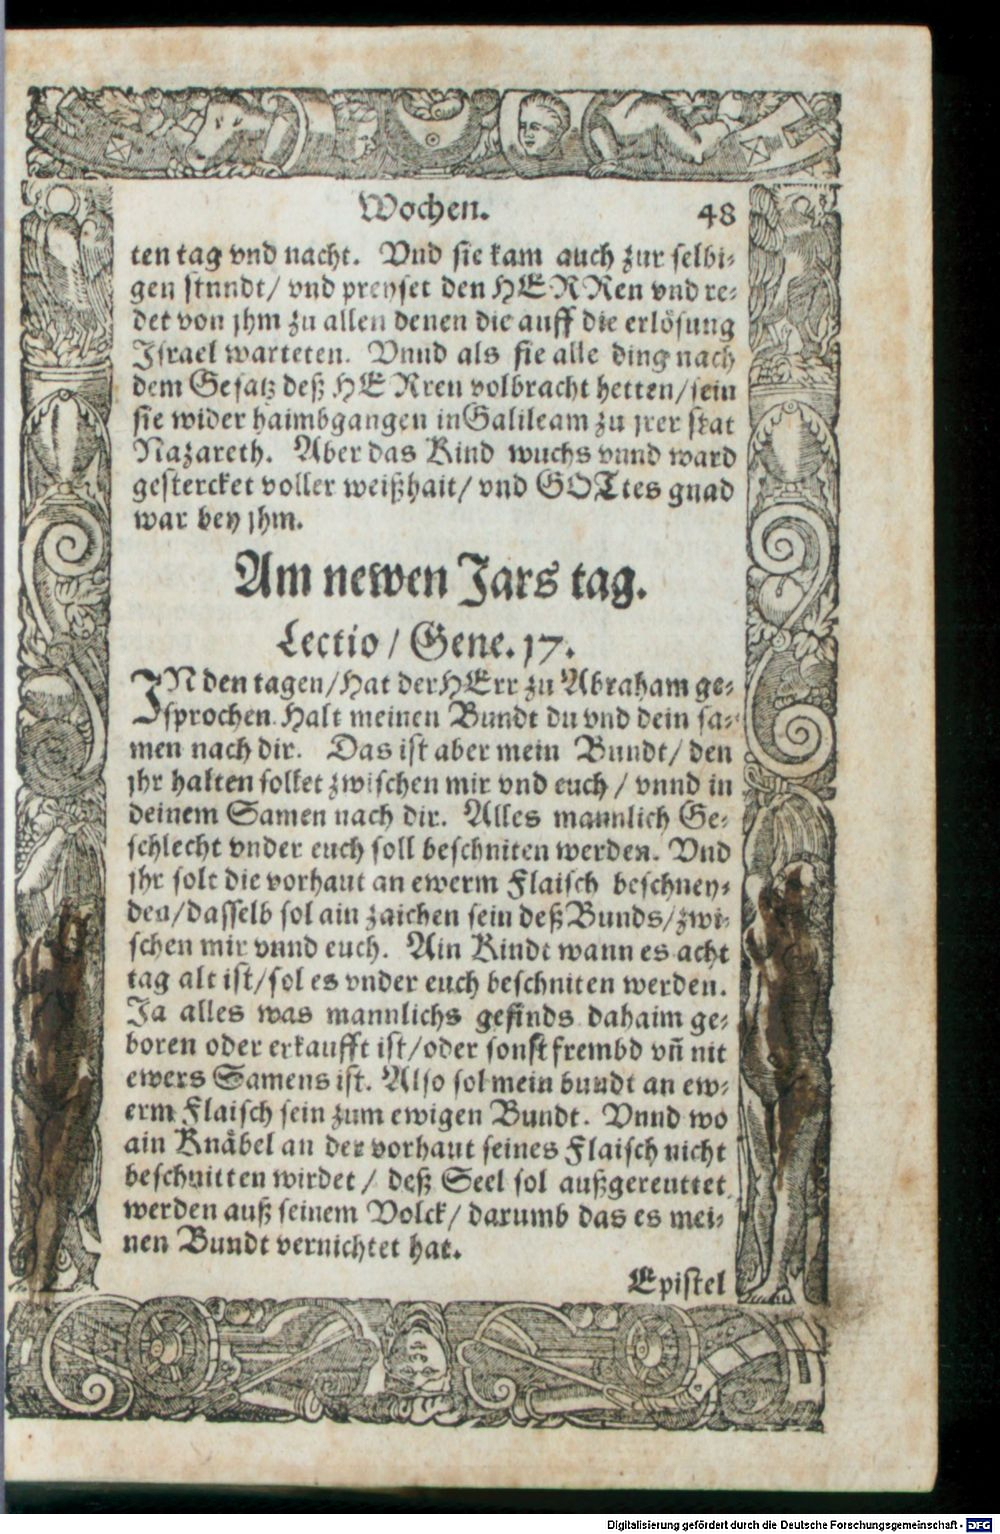 Wochen. 48
ten tag vnd nacht. Vnd sie kam auch zur selbi-
gen stundt/ vnd preyset den HERRen vnd re-
det von jhm zu allen denen die auff die erlösung
Israel warteten. Vnnd als sie alle ding nach
dem Gesatz deß HERren volbracht hetten/sein
sie wider haimbgangen inGalileam zu jrer stat
Nazareth. Aber das Kind wuchs vnnd ward
gestercket voller weißhait/ vnd GOTtes gnad
war bey jhm.
Am newen Jars tag.
Lectio / Gene. 17.
IN den tagen/Hat der HErr zu Abraham ge-
sprochen. Halt meinen Bundt du vnd dein sa-
men nach dir. Das ist aber mein Bundt/ den
jhr halten sollet zwischen mir vnd euch / vnnd in
deinem Samen nach dir. Alles mannlich Ge-
schlecht vnder euch soll beschniten werden. Vnd
jhr solt die vorhaut an ewerm Flaisch beschney-
den/dasselb sol ain zaichen sein deß Bunds/zwi-
schen mir vnnd euch. Ain Kindt wann es acht
tag alt ist/sol es vnder euch beschniten werden.
Ja alles was mannlichs gesinds dahaim ge-
boren oder erkaufft ist/oder sonst frembd vn̄ nit
ewers Samens ist. Also sol mein bundt an ew-
erm Flaisch sein zum ewigen Bundt. Vnnd wo
ain Knäbel an der vorhaut seines Flaisch nicht
beschnitten wirdet / deß Seel sol außgereuttet
werden auß seinem Volck/ darumb das es mei-
nen Bundt vernichtet hat.
Epistel
Digitalisierung gefördert durch die Deutsche Forschungsgemeinschaft - DFG